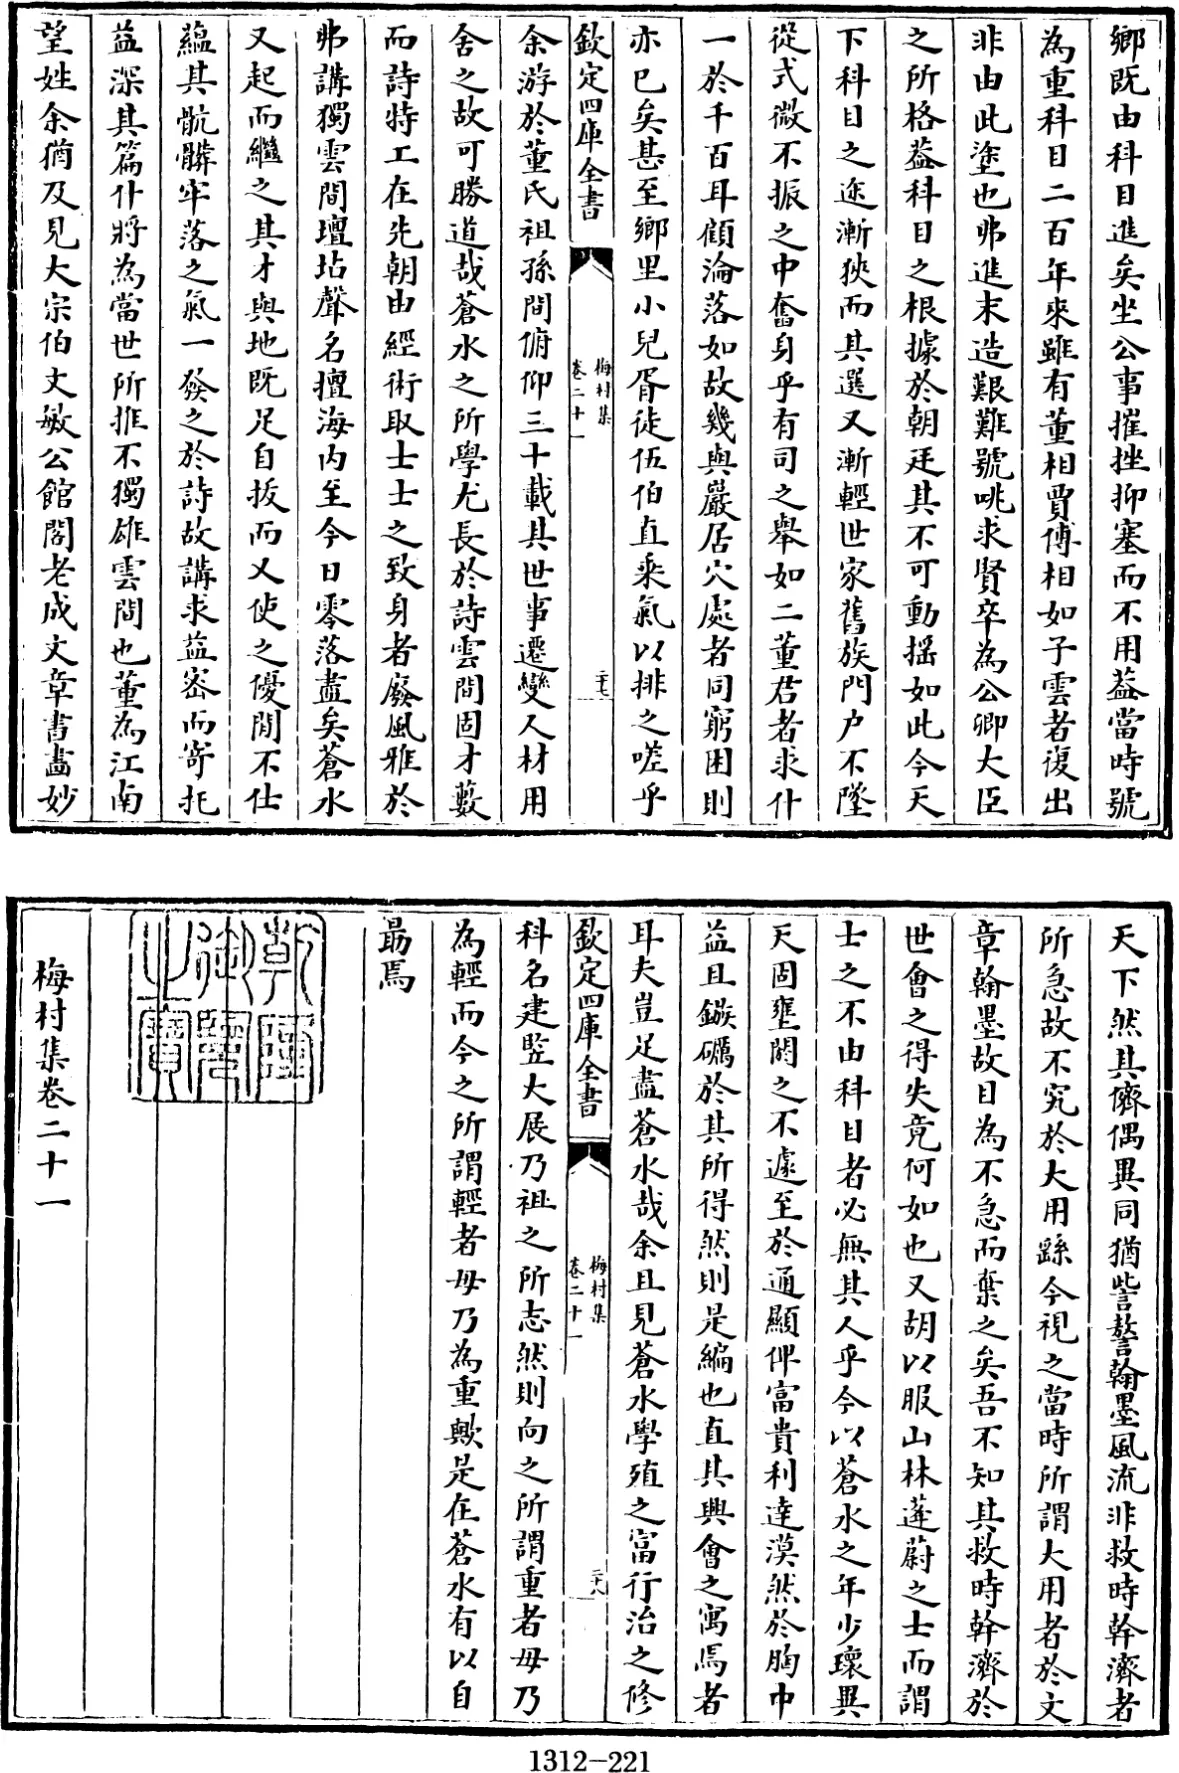 鄉既由科目進矣坐公事摧挫抑塞而不用葢當時號
為重科目二百年來雖有董相賈傅相如子雲者復出
非由此塗也弗進末造艱難號咷求賢卒為公卿大臣
之所格葢科目之根據於朝廷其不可動揺如此今天
下科目之途漸狹而其選又漸輕世家舊族門户不墜
從式微不振之中奮身乎有司之舉如二董君者求什
一於千百耳顧淪落如故幾與巖居穴處者同窮困則
亦已矣甚至鄉里小兒胥徒伍伯直乘氣以排之嗟乎
欽定四庫全書
梅村集
卷二十一
二十七
余游於董氏祖孫間俯仰三十載其世事遷變人材用
舍之故可勝道哉蒼水之所學尤長於詩雲間固才藪
而詩特工在先朝由經術取士士之致身者廢風雅於
弗講獨雲間壇坫聲名擅海内至今日零落盡矣蒼水
又起而繼之其才與地既足自拔而又使之優閒不仕
藴其骯髒牢落之氣一發之於詩故講求益宻而寄托
益深其篇什將為當世所推不獨雄雲間也董為江南
望姓余猶及見大宗伯文敏公館閣老成文章書畵妙
天下然其儕偶異同猶訾謷翰墨風流非救時幹濟者
所急故不究於大用繇今視之當時所謂大用者於文
章翰墨故目為不急而棄之矣吾不知其救時幹濟於
世會之得失竟何如也又胡以服山林蓬蔚之士而謂
士之不由科目者必無其人乎今以蒼水之年少瓌異
天固壅閼之不遽至於通顯俾富貴利達漠然於胸中
益且鏃礪於其所得然則是編也直其興會之寓焉者
耳夫豈足盡蒼水哉余且見蒼水學殖之富行治之修
欽定四庫全書
梅村集
卷二十一
二十八
科名建竪大展乃祖之所志然則向之所謂重者毋乃
為輕而今之所謂輕者毋乃為重歟是在蒼水有以自
勗焉
乾隆御覽之寶
梅村集卷二十一
1312-221